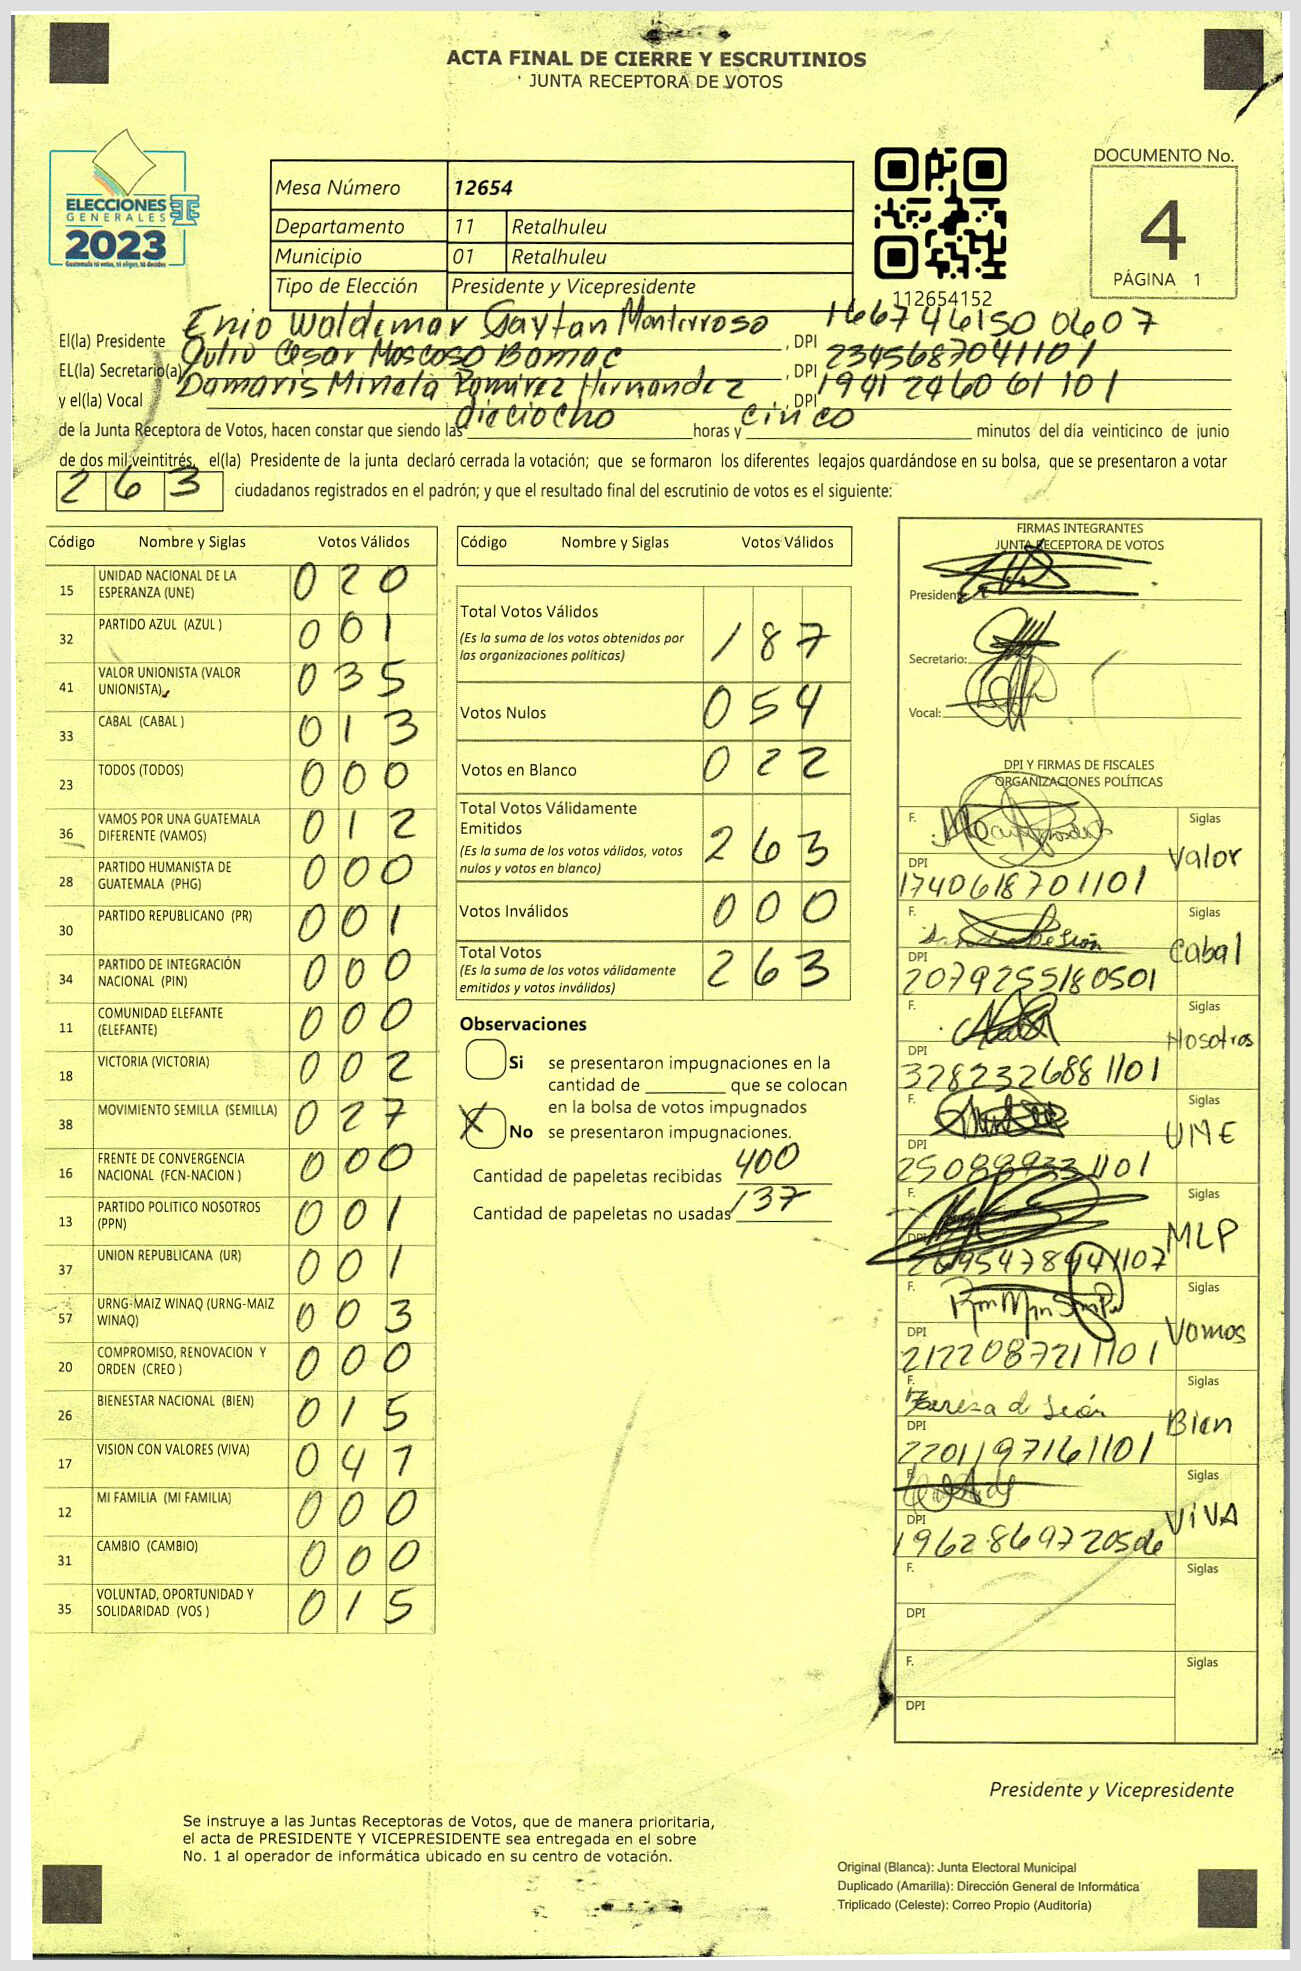 ACTA FINAL DE CIERRE Y ESCRUTINIOS
JUNTA RECEPTORA DE VOTOS
ELECCIONES
GENERALES
2023
Guatemala tú votas, tú eliges, tú decides
Mesa Número 12654
Departamento 11 Retalhuleu
Municipio 01 Retalhuleu
Tipo de Elección Presidente y Vicepresidente
112654152
DOCUMENTO No.
4
PÁGINA 1
El(la) Presidente Enio Waldemar Gaytan Monterroso, DPI 1667461500607
EL(la) Secretario(a) Julio Cesar Moscoso Bamac, DPI 2345687041101
y el(la) Vocal Damaris Minela Ramirez Hernandez, DPI 1941246061101
de la Junta Receptora de Votos, hacen constar que siendo las dieciocho horas y cinco minutos del día veinticinco de junio
de dos mil veintitrés, el(la) Presidente de la junta declaró cerrada la votación; que se formaron los diferentes legajos guardándose en su bolsa, que se presentaron a votar
263 ciudadanos registrados en el padrón; y que el resultado final del escrutinio de votos es el siguiente:
Código Nombre y Siglas Votos Válidos
15 UNIDAD NACIONAL DE LA ESPERANZA (UNE) 020
32 PARTIDO AZUL (AZUL ) 001
41 VALOR UNIONISTA (VALOR UNIONISTA) 035
33 CABAL (CABAL ) 013
23 TODOS (TODOS) 000
36 VAMOS POR UNA GUATEMALA DIFERENTE (VAMOS) 012
28 PARTIDO HUMANISTA DE GUATEMALA (PHG) 000
30 PARTIDO REPUBLICANO (PR) 001
34 PARTIDO DE INTEGRACIÓN NACIONAL (PIN) 000
11 COMUNIDAD ELEFANTE (ELEFANTE) 000
18 VICTORIA (VICTORIA) 002
38 MOVIMIENTO SEMILLA (SEMILLA) 027
16 FRENTE DE CONVERGENCIA NACIONAL (FCN-NACION ) 000
13 PARTIDO POLITICO NOSOTROS (PPN) 001
37 UNION REPUBLICANA (UR) 001
57 URNG-MAIZ WINAQ (URNG-MAIZ WINAQ) 003
20 COMPROMISO, RENOVACION Y ORDEN (CREO ) 000
26 BIENESTAR NACIONAL (BIEN) 015
17 VISION CON VALORES (VIVA) 041
12 MI FAMILIA (MI FAMILIA) 000
31 CAMBIO (CAMBIO) 000
35 VOLUNTAD, OPORTUNIDAD Y SOLIDARIDAD (VOS ) 015
Código Nombre y Siglas Votos Válidos
Total Votos Válidos 187
(Es la suma de los votos obtenidos por
las organizaciones políticas)
Votos Nulos 054
Votos en Blanco 022
Total Votos Válidamente
Emitidos 263
(Es la suma de los votos válidos, votos
nulos y votos en blanco)
Votos Inválidos 000
Total Votos 263
(Es la suma de los votos válidamente
emitidos y votos inválidos)
Observaciones
Si se presentaron impugnaciones en la
cantidad de ________ que se colocan
en la bolsa de votos impugnados
X No se presentaron impugnaciones.
Cantidad de papeletas recibidas 400
Cantidad de papeletas no usadas 137
FIRMAS INTEGRANTES
JUNTA RECEPTORA DE VOTOS
Presidente:
Secretario:
Vocal:
DPI Y FIRMAS DE FISCALES
ORGANIZACIONES POLÍTICAS
F. Siglas
Valor
DPI 1740618701101
F. Siglas
Cabal
DPI 2079255180501
F. Siglas
Nosotros
DPI 3282326881101
F. Siglas
UNE
DPI
F. Siglas
MLP
DPI
F. Siglas
Vamos
DPI 2122087211101
F. Teresa de León Siglas
Bien
DPI 2201197161101
F. Siglas
ViVA
DPI 1962869720506
F. Siglas
DPI
F. Siglas
DPI
Presidente y Vicepresidente
Se instruye a las Juntas Receptoras de Votos, que de manera prioritaria,
el acta de PRESIDENTE Y VICEPRESIDENTE sea entregada en el sobre
No. 1 al operador de informática ubicado en su centro de votación.
Original (Blanca): Junta Electoral Municipal
Duplicado (Amarilla): Dirección General de Informática
Triplicado (Celeste): Correo Propio (Auditoría)